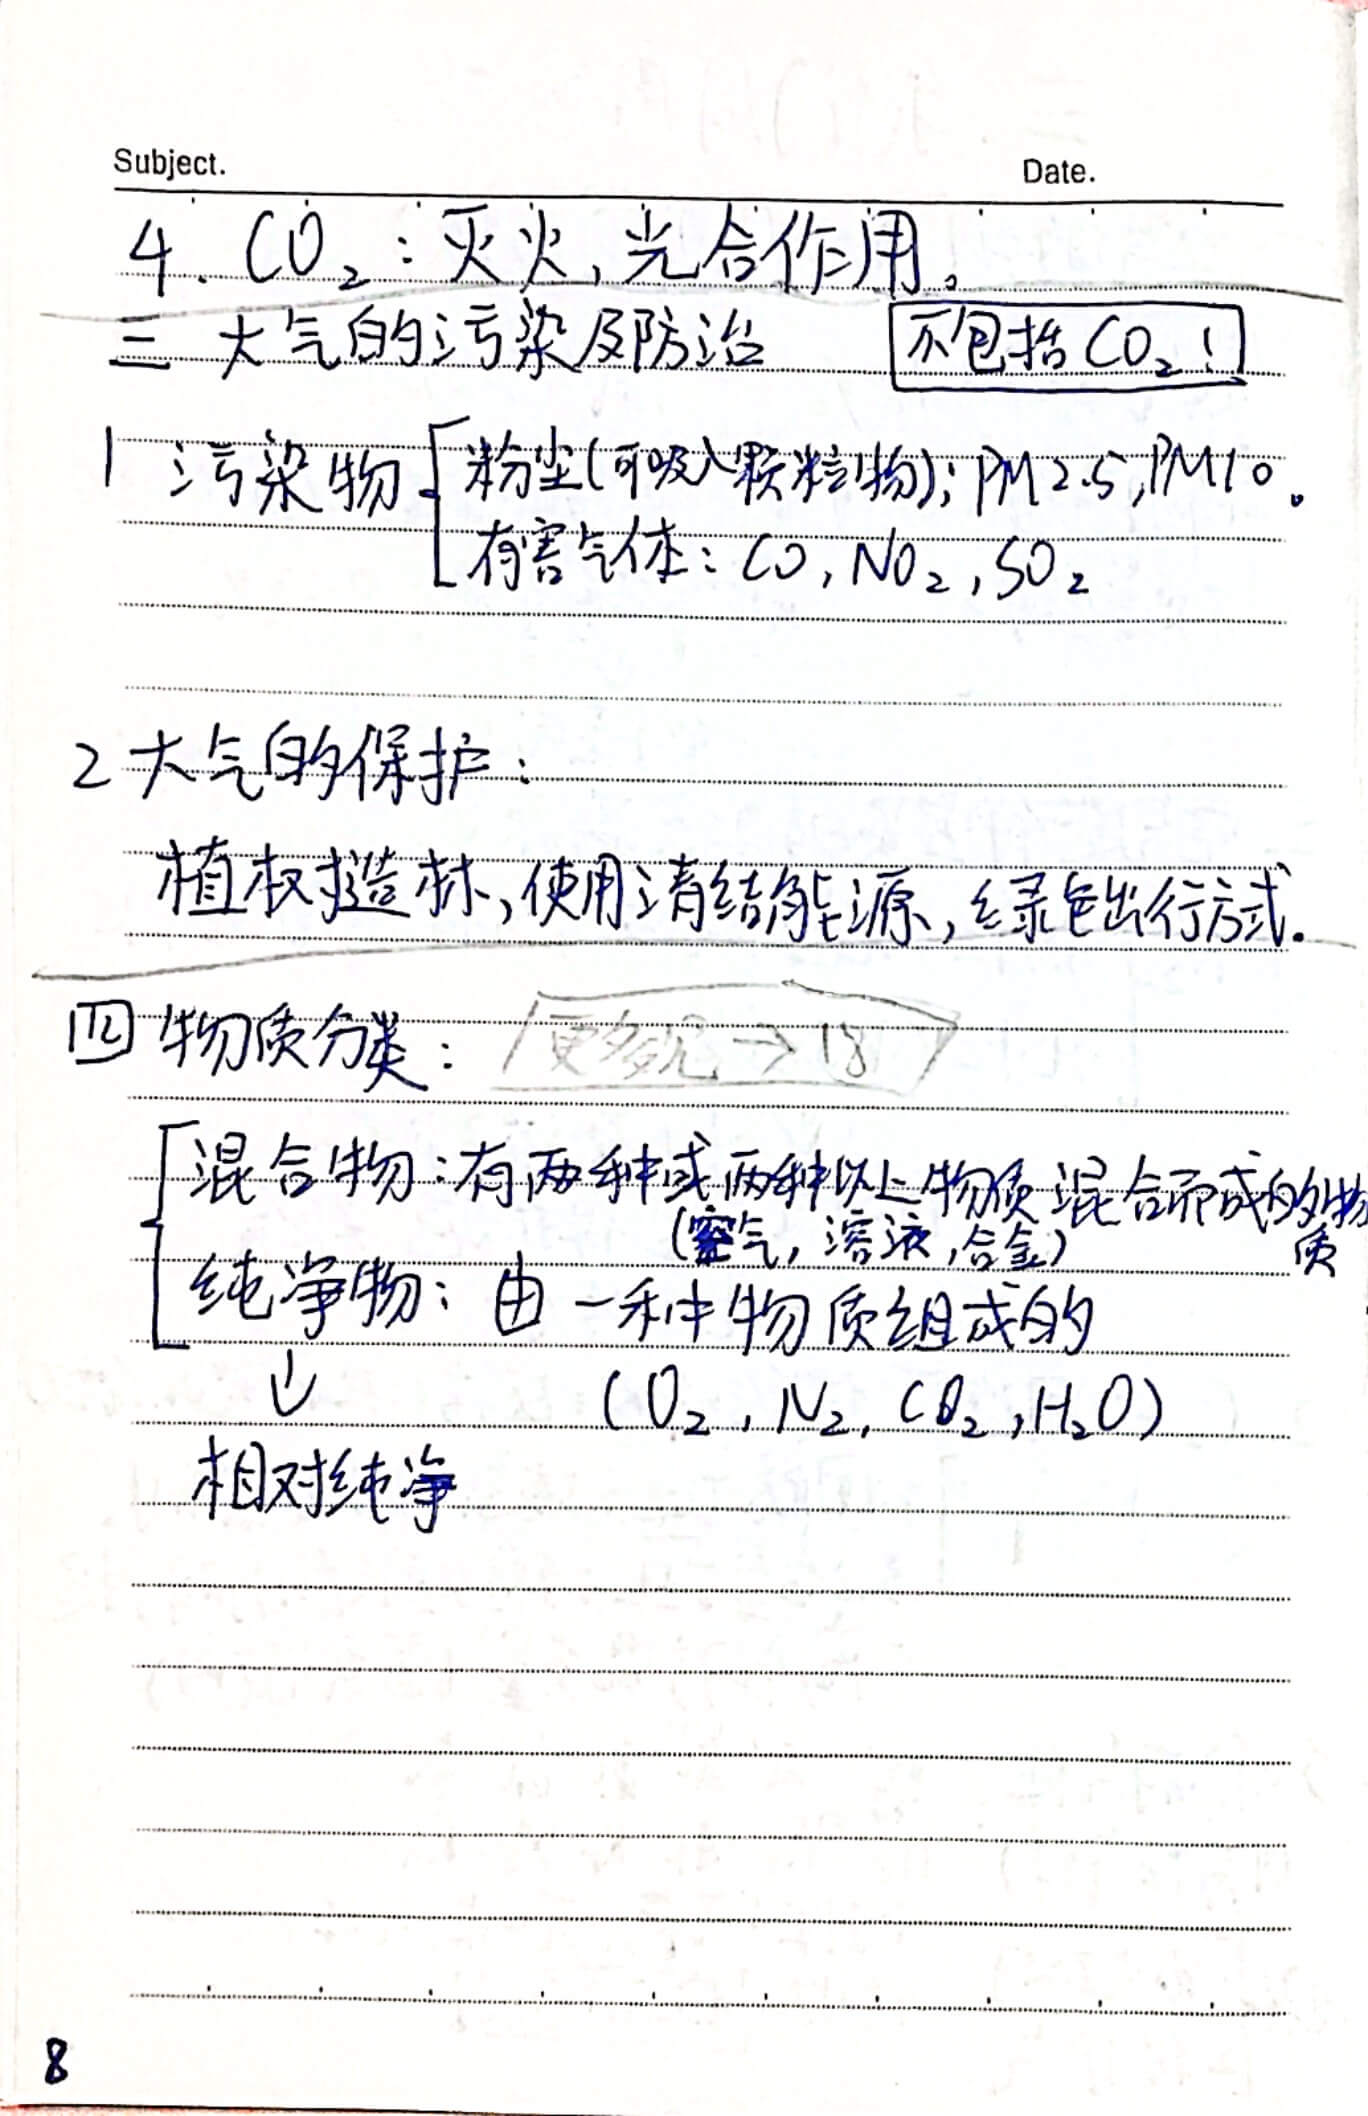 Subject.
Date.
4. CO₂：灭火，光合作用。
三 大气的污染及防治 不包括CO₂！
1 污染物 粉尘(可吸入颗粒物)；PM2.5，PM10。
有害气体：CO，NO₂，SO₂
2 大气的保护：
植树造林，使用清结能源，绿色出行方式.
四 物质分类： 更多见→18
混合物：有两种或两种以上物质混合而成的物质
(空气，溶液，合金)
纯净物：由一种物质组成的
↓ (O₂，N₂，CO₂，H₂O)
相对纯净
8